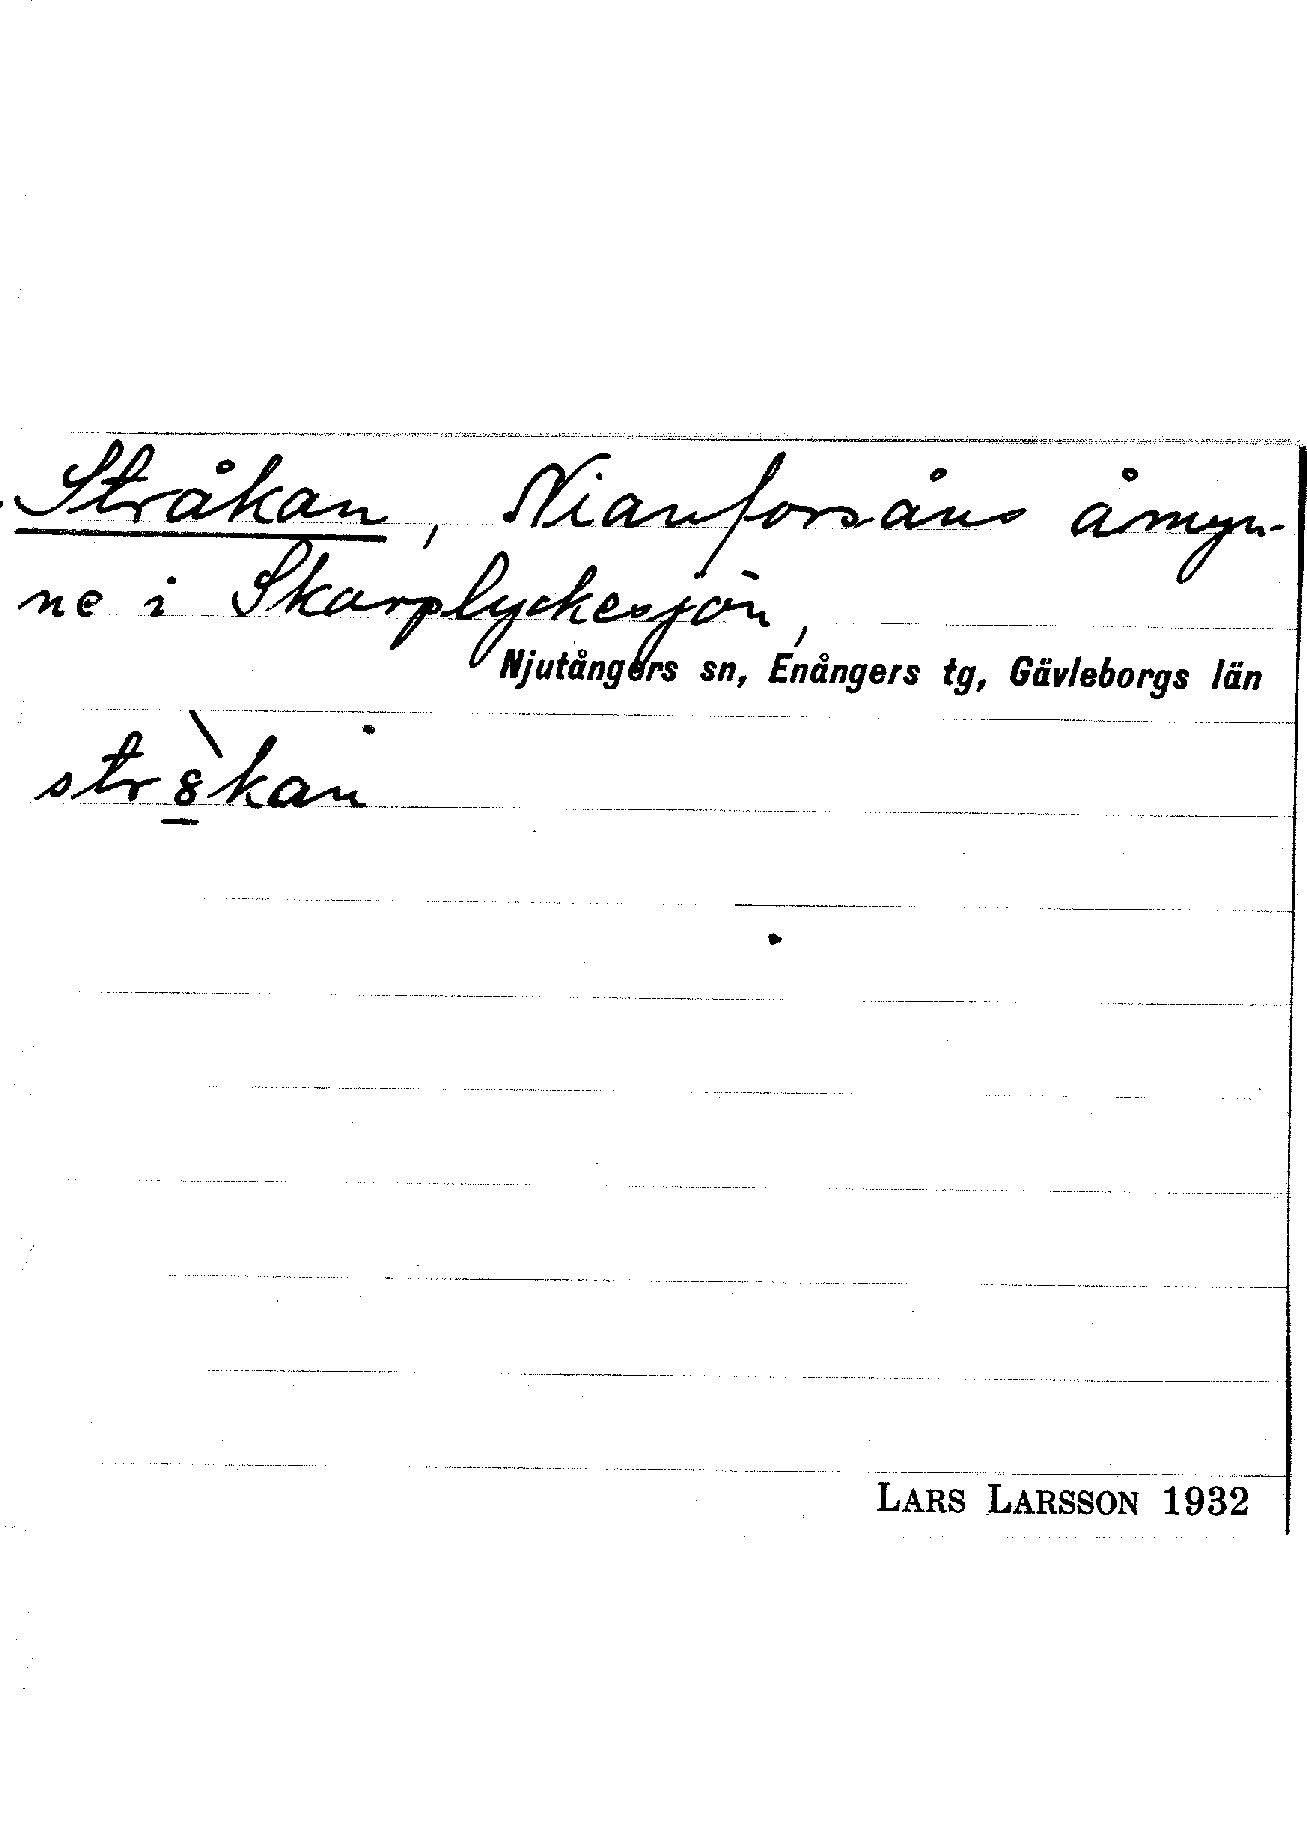 Stråkan, Nianforsåns åmyn-
ne i Skarplyckesjön,
Njutångers sn, Enångers tg, Gävleborgs län
str8̲̀kaṅ
LARS LARSSON 1932